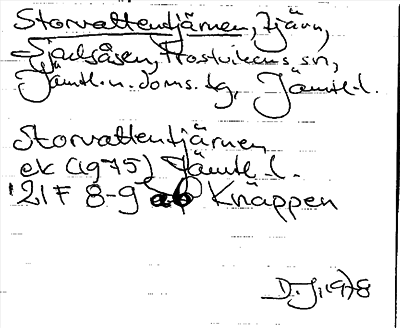 Storvattentjärnen, Tjärn,
Sjoutåsen, Frostvikens sn,
Jämtl. n. doms. tg, Jämtl. l.
Storvattentjärnen
ek (1975) Jämtl. l.
21F 8-9 ab Knäppen
D.J. 1978